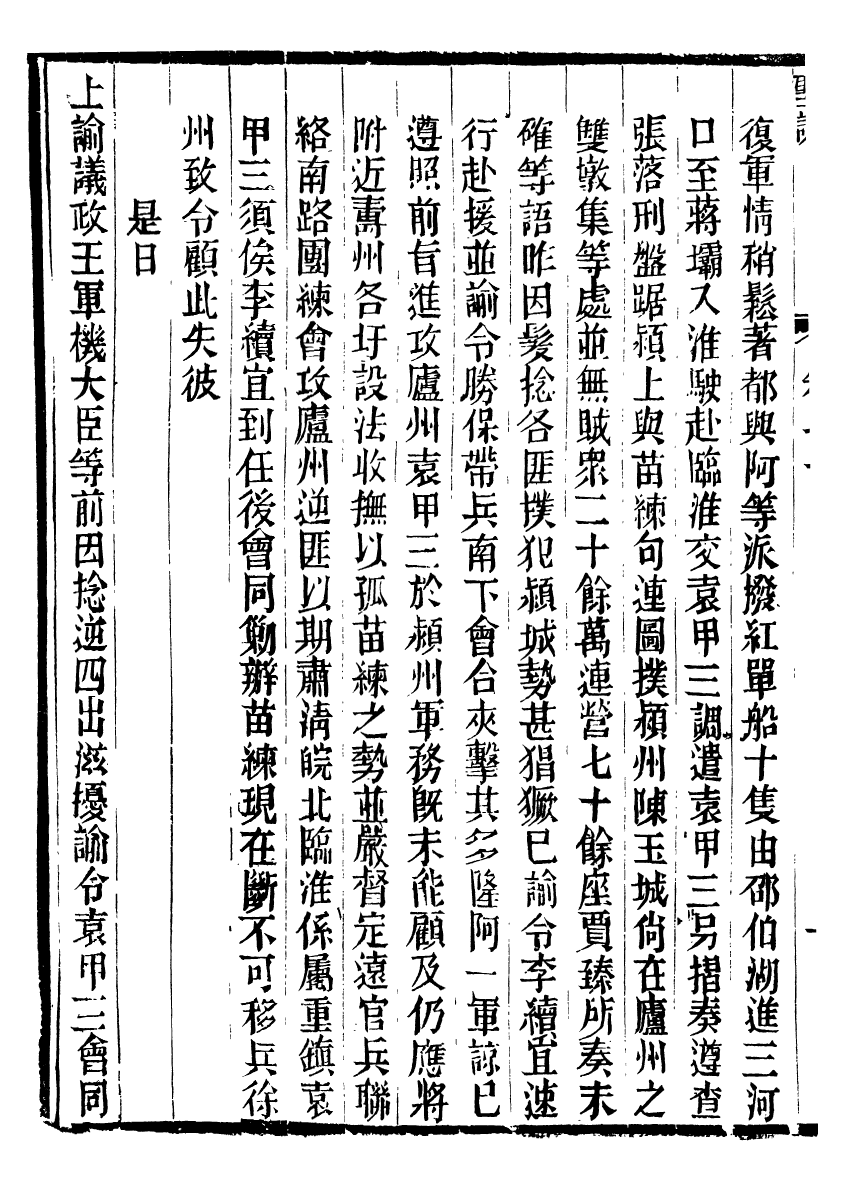 復軍情稍鬆著都興阿等派撥紅單船十隻由邵伯湖進三河
口至蔣壩入淮駛赴臨淮交袁甲三調遣袁甲三另摺奏遵查
張落刑盤踞潁上與苗練句連圖撲潁州陳玉城尙在廬州之
雙墩集等處並無賊眾二十餘萬連營七十餘座賈臻所奏未
確等語昨因髮捻各匪撲犯潁城勢甚猖獗已諭令李續宜速
行赴援並諭令勝保帶兵南下會合夾擊其多隆阿一軍諒已
遵照前旨進攻廬州袁甲三於潁州軍務旣未能顧及仍應將
附近壽州各圩設法收撫以孤苗練之勢並嚴督定遠官兵聯
絡南路團練會攻廬州逆匪以期肅淸皖北臨淮係屬重鎭袁
甲三須俟李續宜到任後會同勦辦苗練現在斷不可移兵徐
州致令顧此失彼
是日
上諭議政王軍機大臣等前因捻逆四出滋擾諭令袁甲三會同